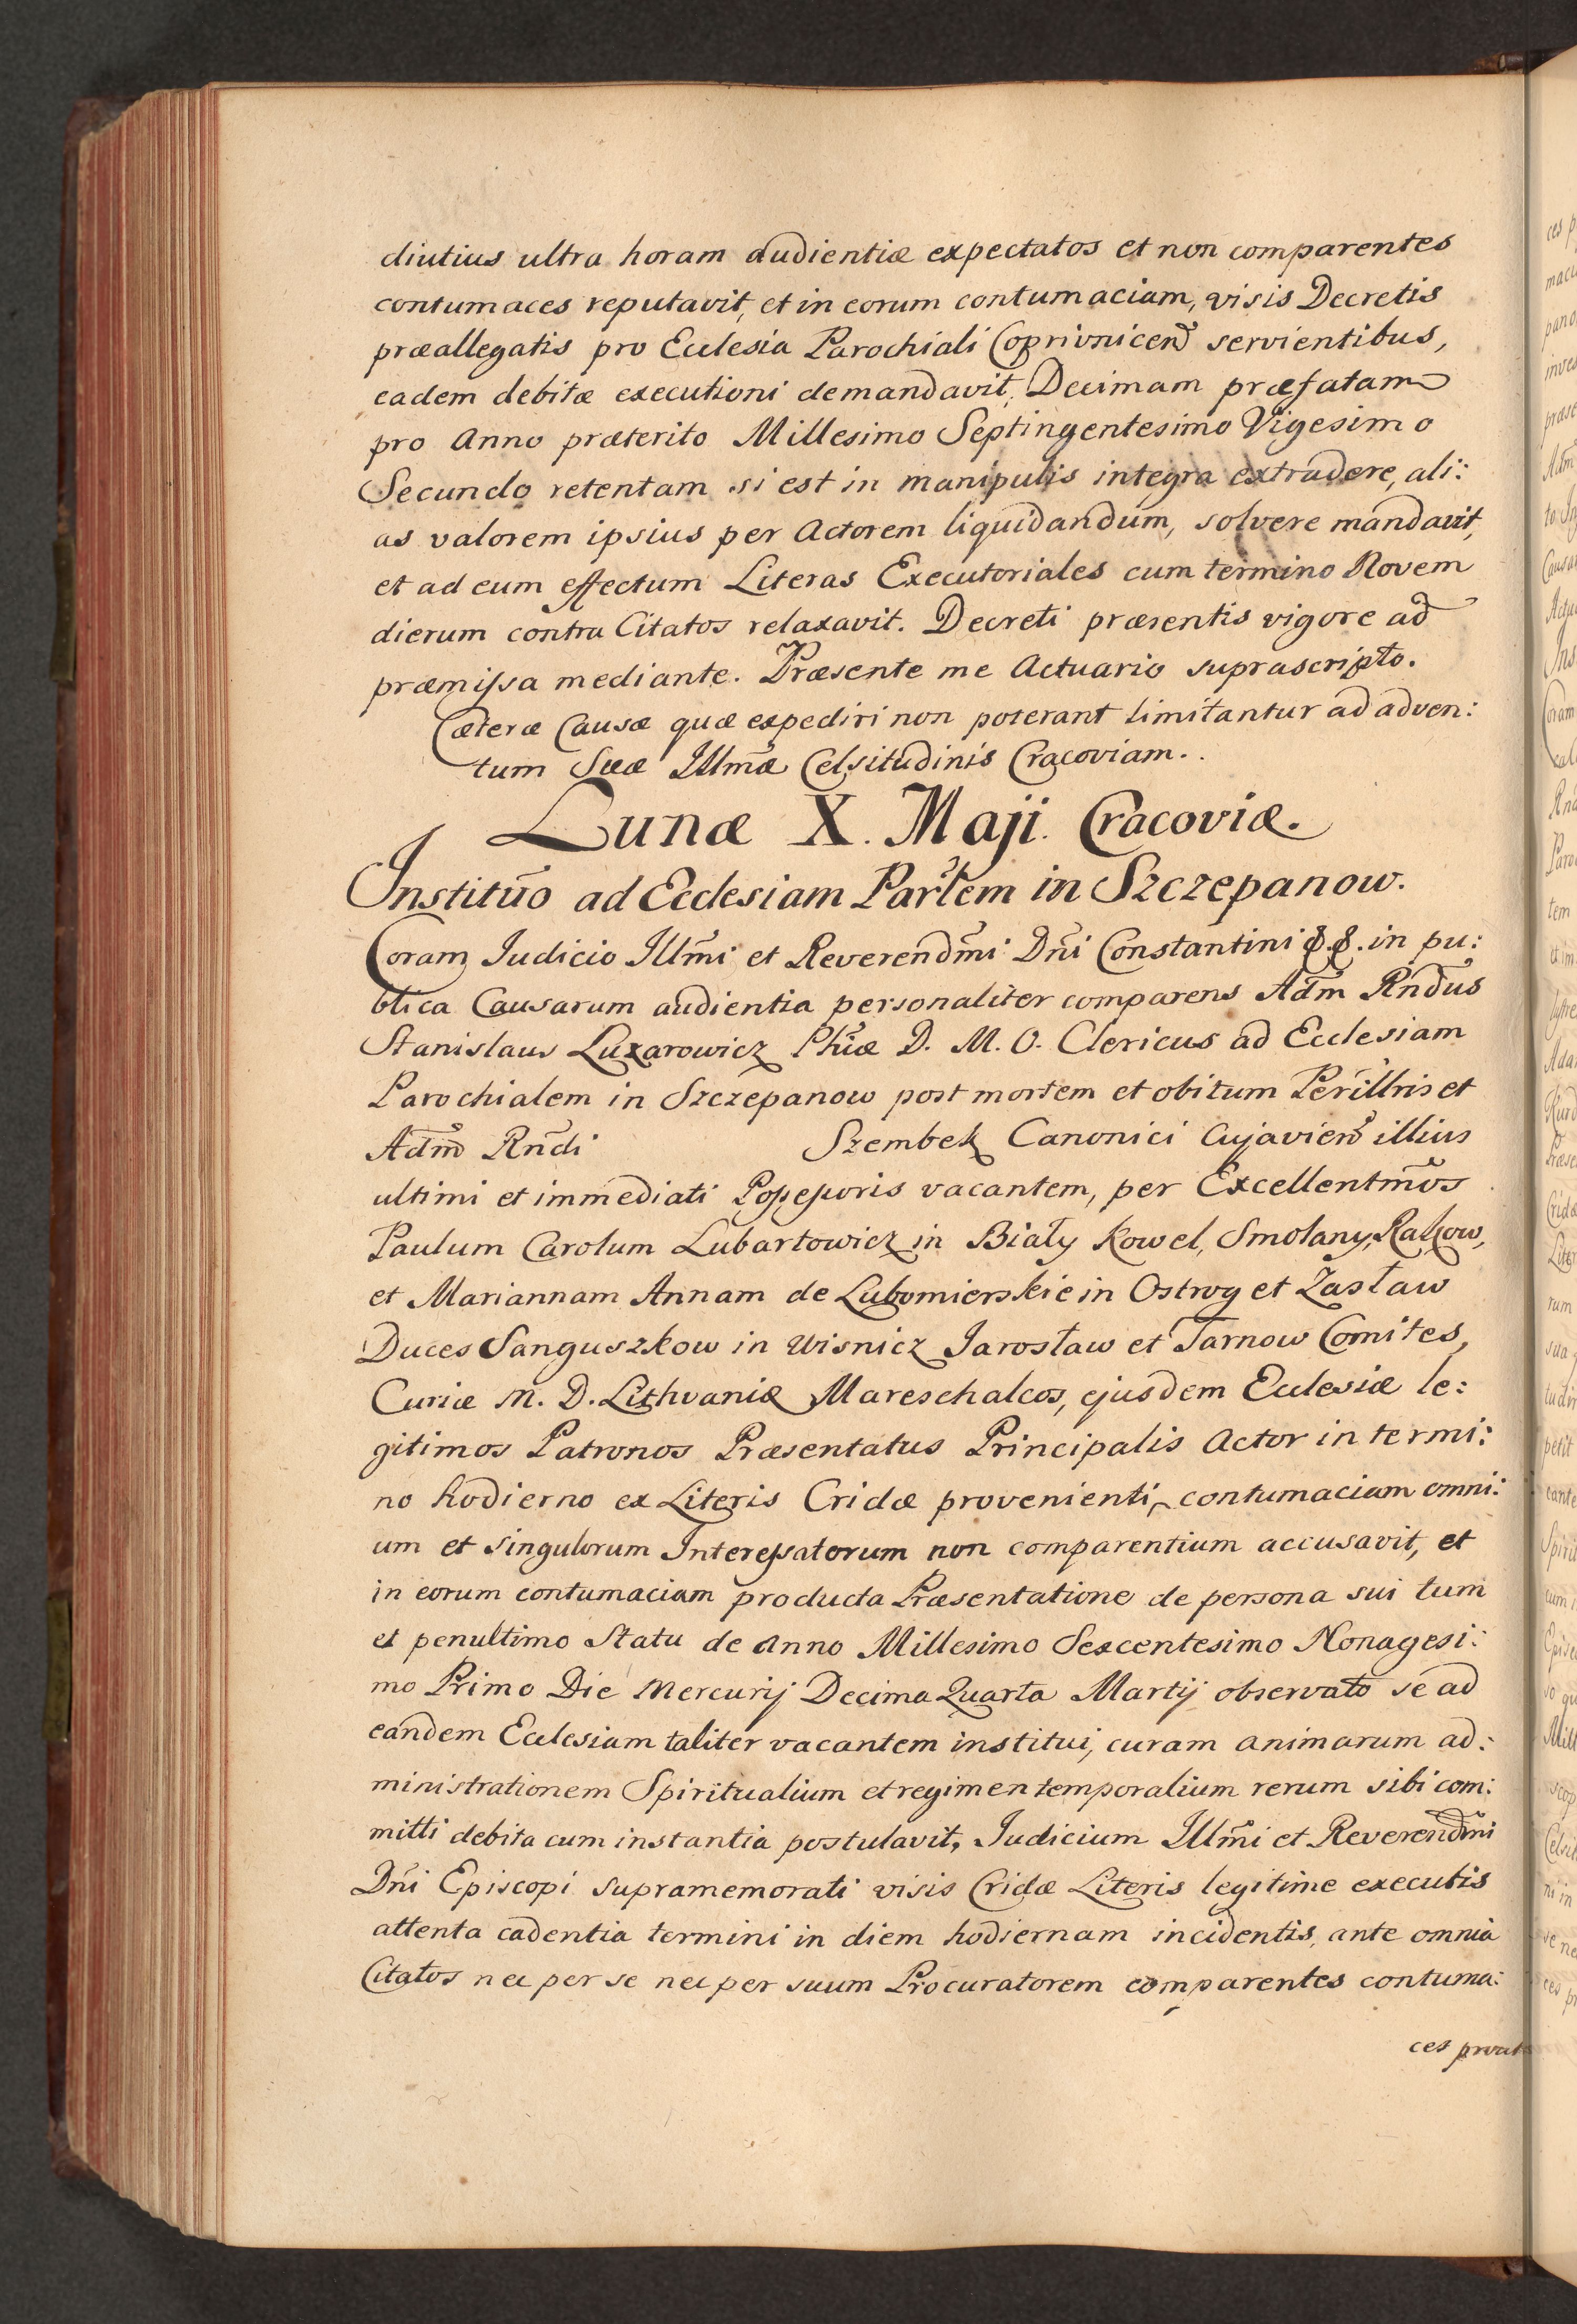 diutius ultra horam audientiæ expectatos et non comparentes
contumaces reputavit, et in eorum contumaciam, visis Decretis
præallegatis pro Ecclesia Parochiali Coprivnicen̄ servientibus,
eadem debitæ executioni demandavit, Decimam præfatam
pro Anno præterito Millesimo Septingentesimo Vigesimo
Secundo retentam si est in manipulis integra extradere, ali:
as valorem ipsius per Actorem liquidandum, solvere mandavit,
et ad eum effectum Literas Executoriales cum termino Novem
dierum contra Citatos relaxavit. Decreti præsentis vigore ad
præmissa mediante. Præsente me Actuario suprascripto.
Cæteræ Causæ quæ expediri non poterant limitantur ad adven:
tum Suæ Illmæ Celsitudinis Cracoviam.
Lunæ X. Maji. Cracoviæ.
Institūo ad Ecclesiam Parlem in Szczepanow.
Coram Judicio Illm̄i et Reverendm̄i Dn̄i Constantini &. &. in pu:
blica Causarum audientia personaliter comparens Adm̄ Rn̄dus
Stanislaus Luxarowicz Phiæ D. M. O. Clericus ad Ecclesiam
Parochialem in Szczepanow post mortem et obitum Perillris et
Adm̄ Rn̄di Szembek Canonici Cujavien̄ illius
ultimi et immediati Possessoris vacantem, per Excellentm̄os
Paulum Carolum Lubartowicz in Biały Kowel, Smolany, Rakow,
et Mariannam Annam de Lubomierskie in Ostrog et Zasław
Duces Sanguszkow in Wisnicz Jarosław et Tarnow Comites,
Curiæ M. D. Lithvaniæ Mareschalcos, ejusdem Ecclesiæ le:
gitimos Patronos Præsentatus Principalis Actor in termi:
no hodierno ex Literis Cridæ provenienti, contumaciam omni:
um et singulorum Interessatorum non comparentium accusavit, et
in eorum contumaciam producta Præsentatione de persona sui tum
et penultimo Statu de Anno Millesimo Sexcentesimo Nonagesi:
mo Primo Die Mercurij Decima Quarta Martij observato se ad
eandem Ecclesiam taliter vacantem institui, curam animarum ad:
ministrationem Spiritualium et regimen temporalium rerum sibi com:
mitti debita cum instantia postulavit, Judicium Illm̄i et Reverendm̄i
Dn̄i Episcopi supramemorati visis Cridæ Literis legitime executis
attenta cadentia termini in diem hodiernam incidentis, ante omnia
Citatos nec per se nec per suum Procuratorem comparentes contuma:
ces